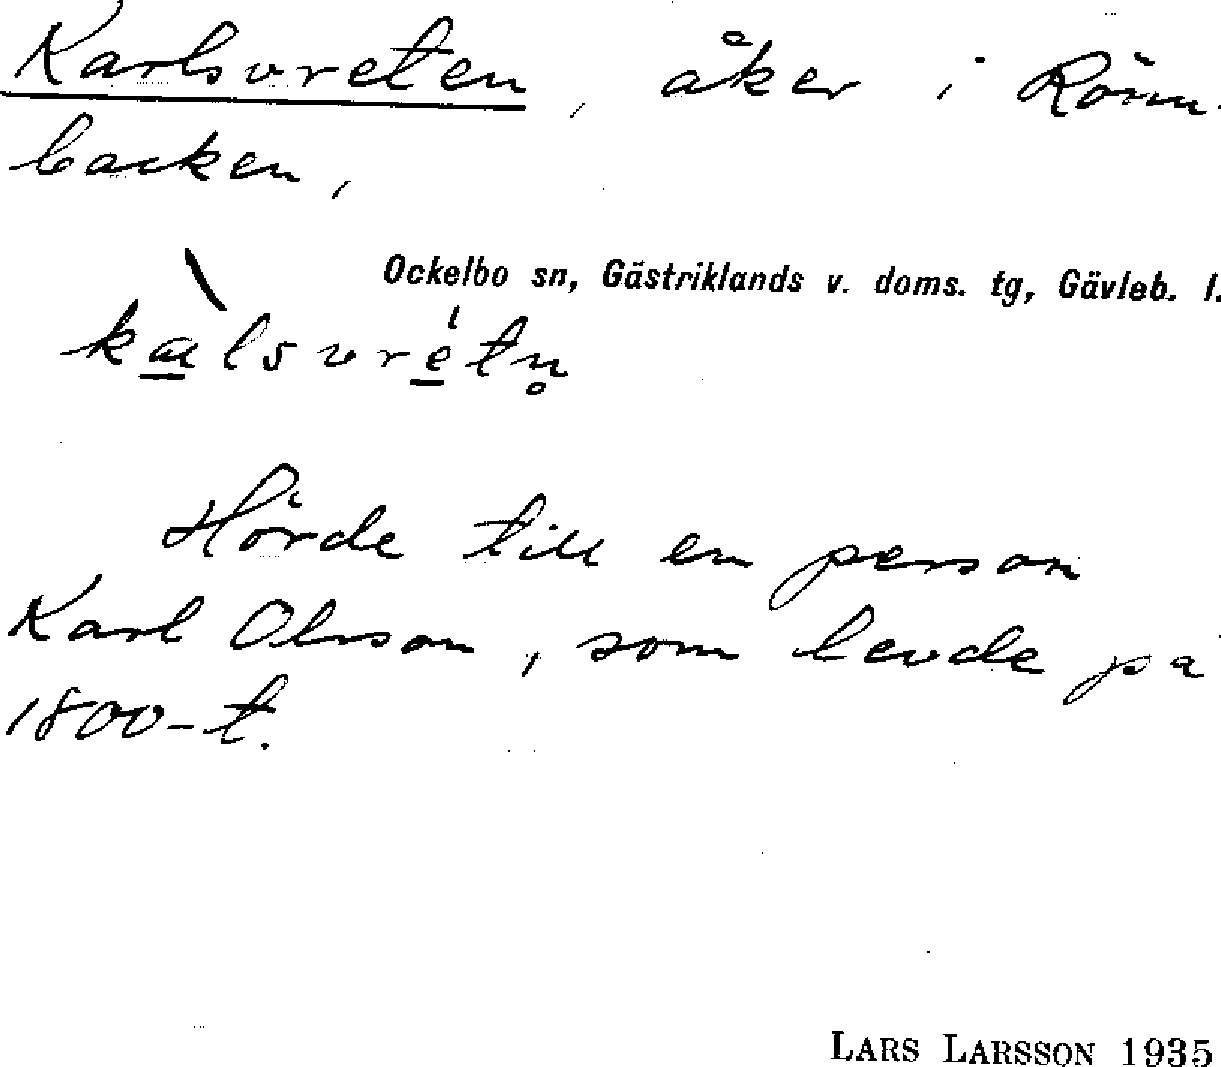 Karlsvreten, åker i Rönn-
backen,
Ockelbo sn, Gästriklands v. doms. tg, Gävleb. l.
kalsvrétn̥
Hörde till en person
Karl Olsson, som levde på
1800-t.
LARS LARSSON 1935